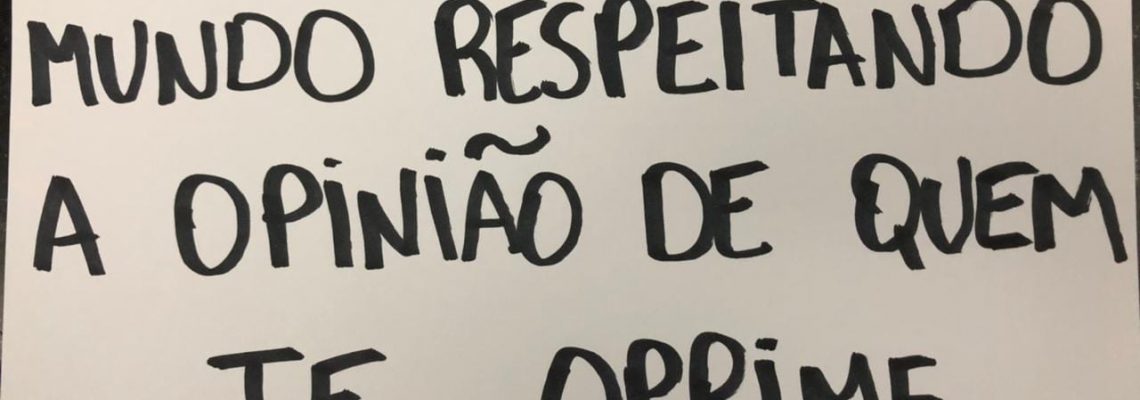 MUNDO RESPEITANDO
A OPINIÃO DE QUEM
TE OPRIME